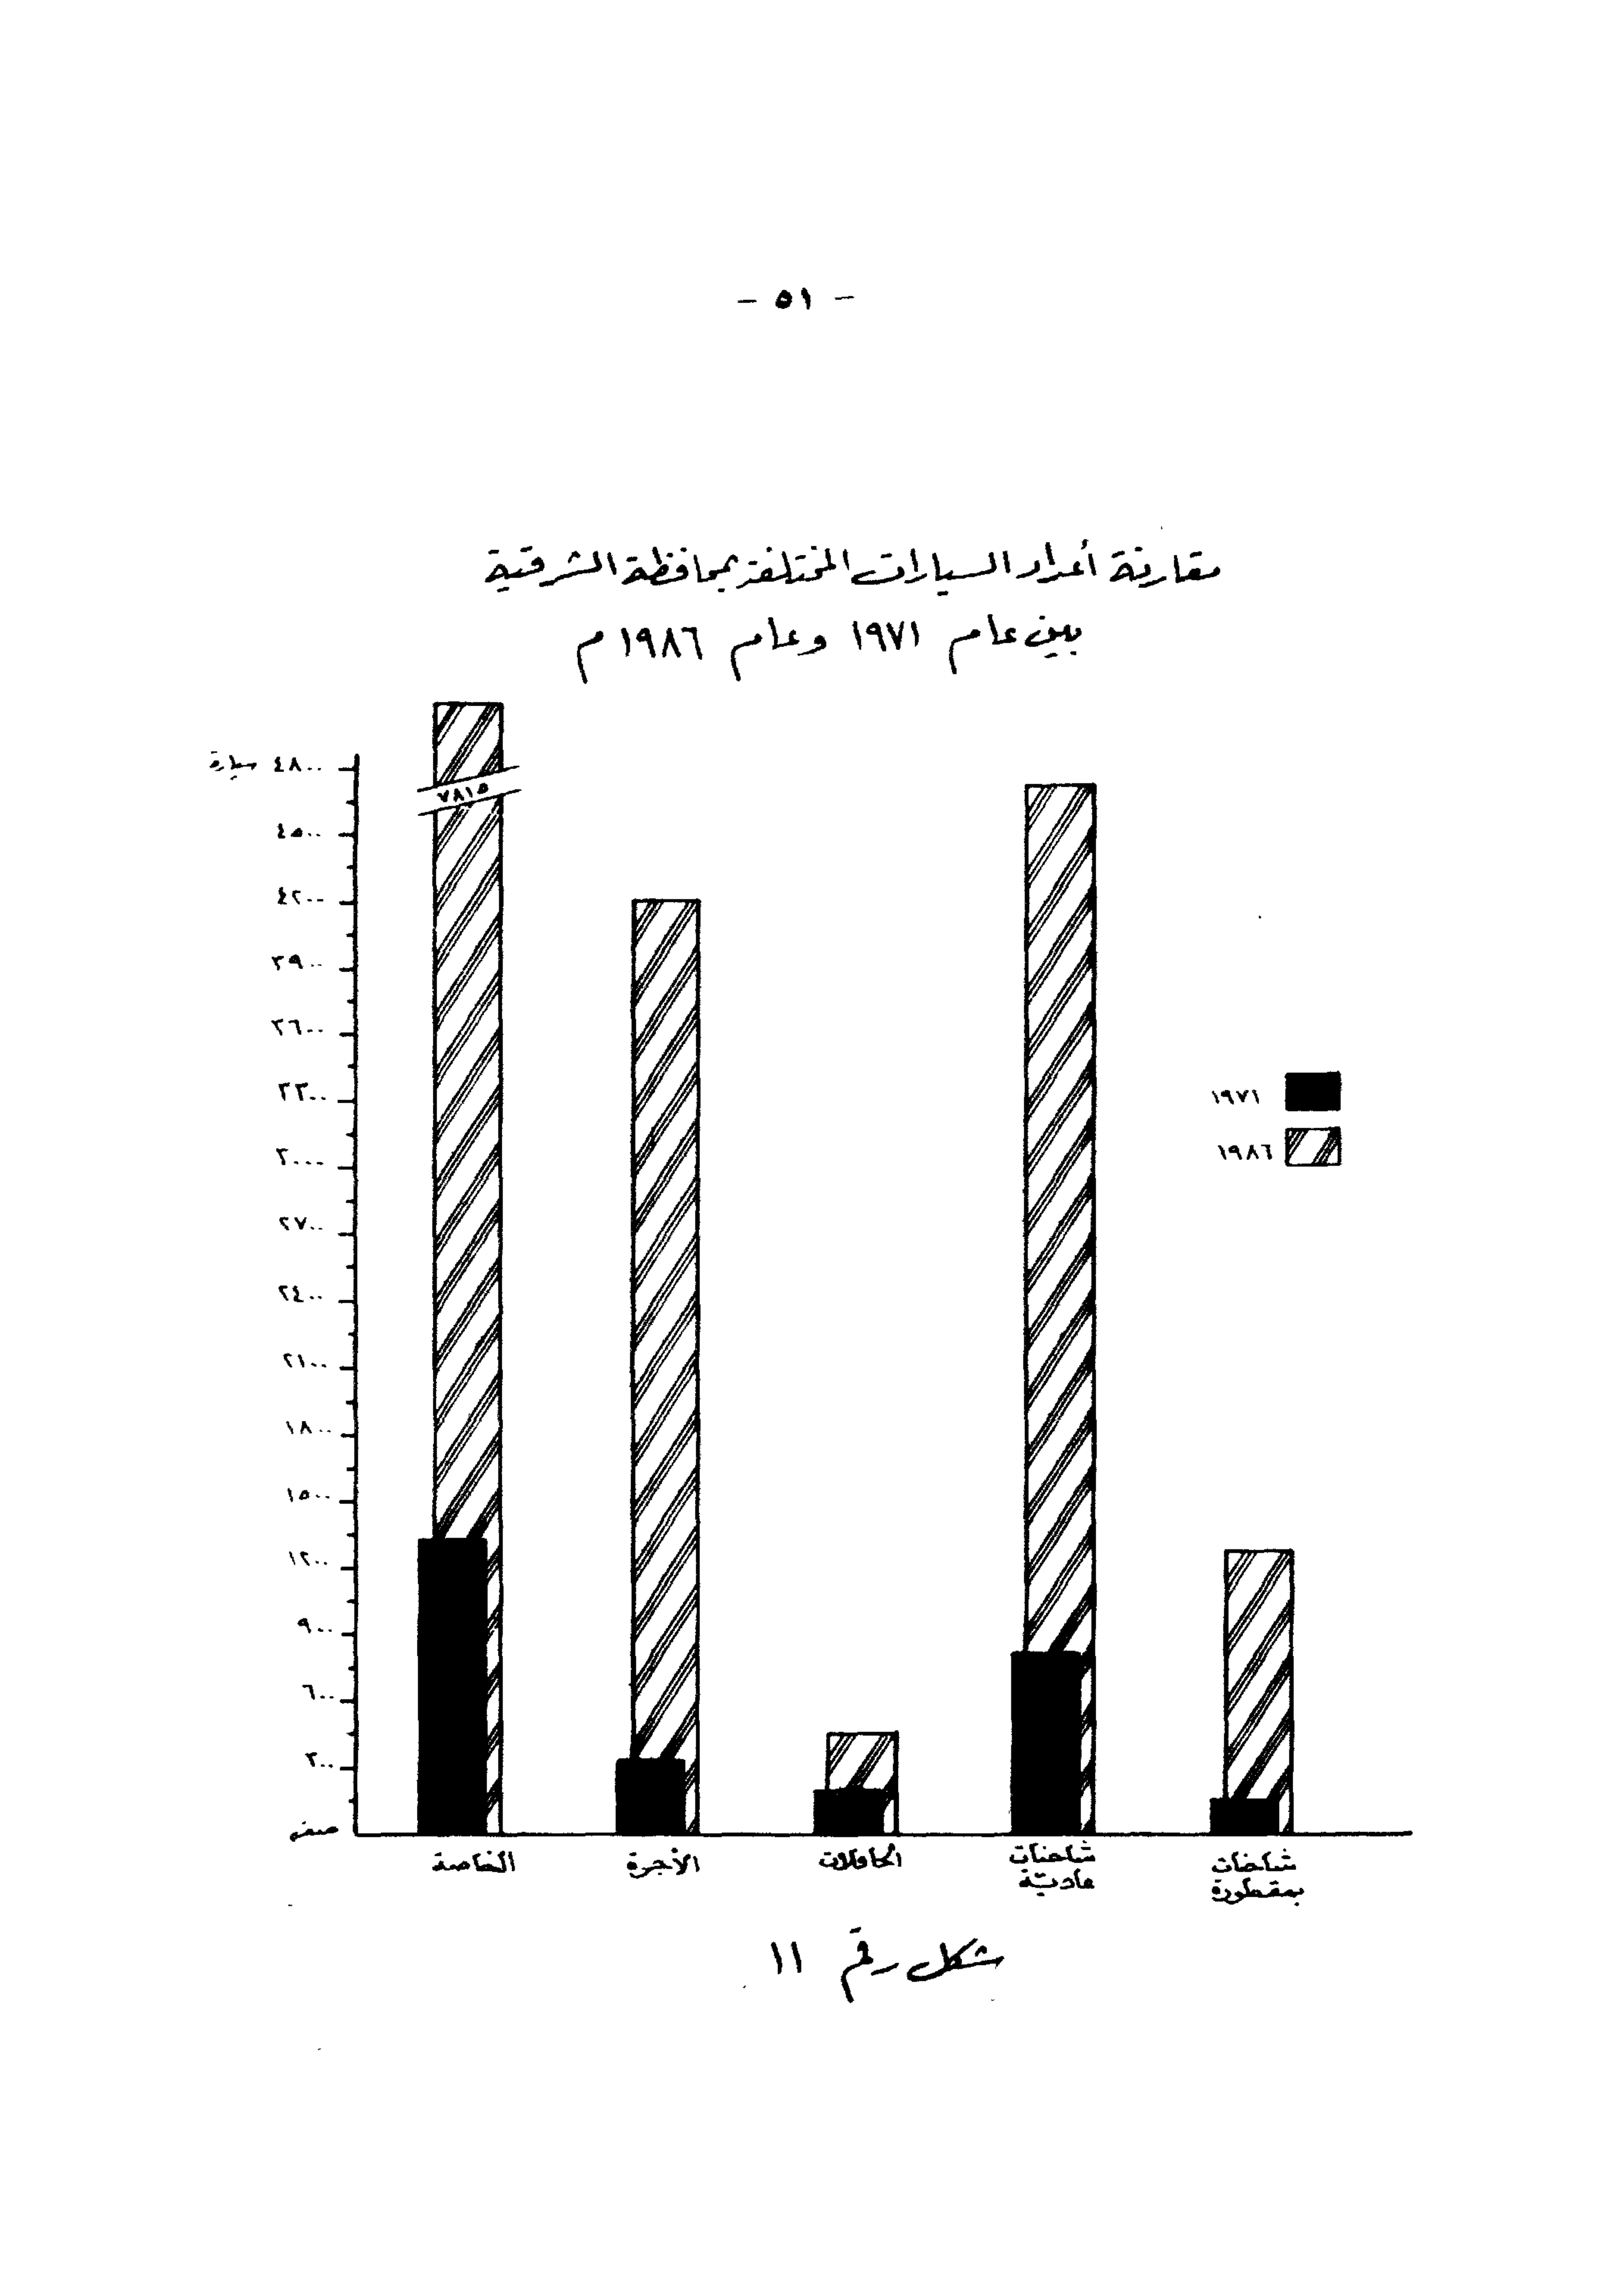 - ٥١ -
مقارنة أعداد السيارات المختلفة بمحافظة الشرقية
بين عام ١٩٧١ وعام ١٩٨٦ م
٤٨٠٠ سيارة
٧٨١٥
٤٥٠٠
٤٢٠٠
٣٩٠٠
٣٦٠٠
٣٣٠٠
٣٠٠٠
٢٧٠٠
٢٤٠٠
٢١٠٠
١٨٠٠
١٥٠٠
١٢٠٠
٩٠٠
٦٠٠
٣٠٠
صفر
١٩٧١
١٩٨٦
الخاصة
الأجرة
الحافلات
شاحنات
عاديّة
شاحنات
بمقطورة
شكل رقم ١١